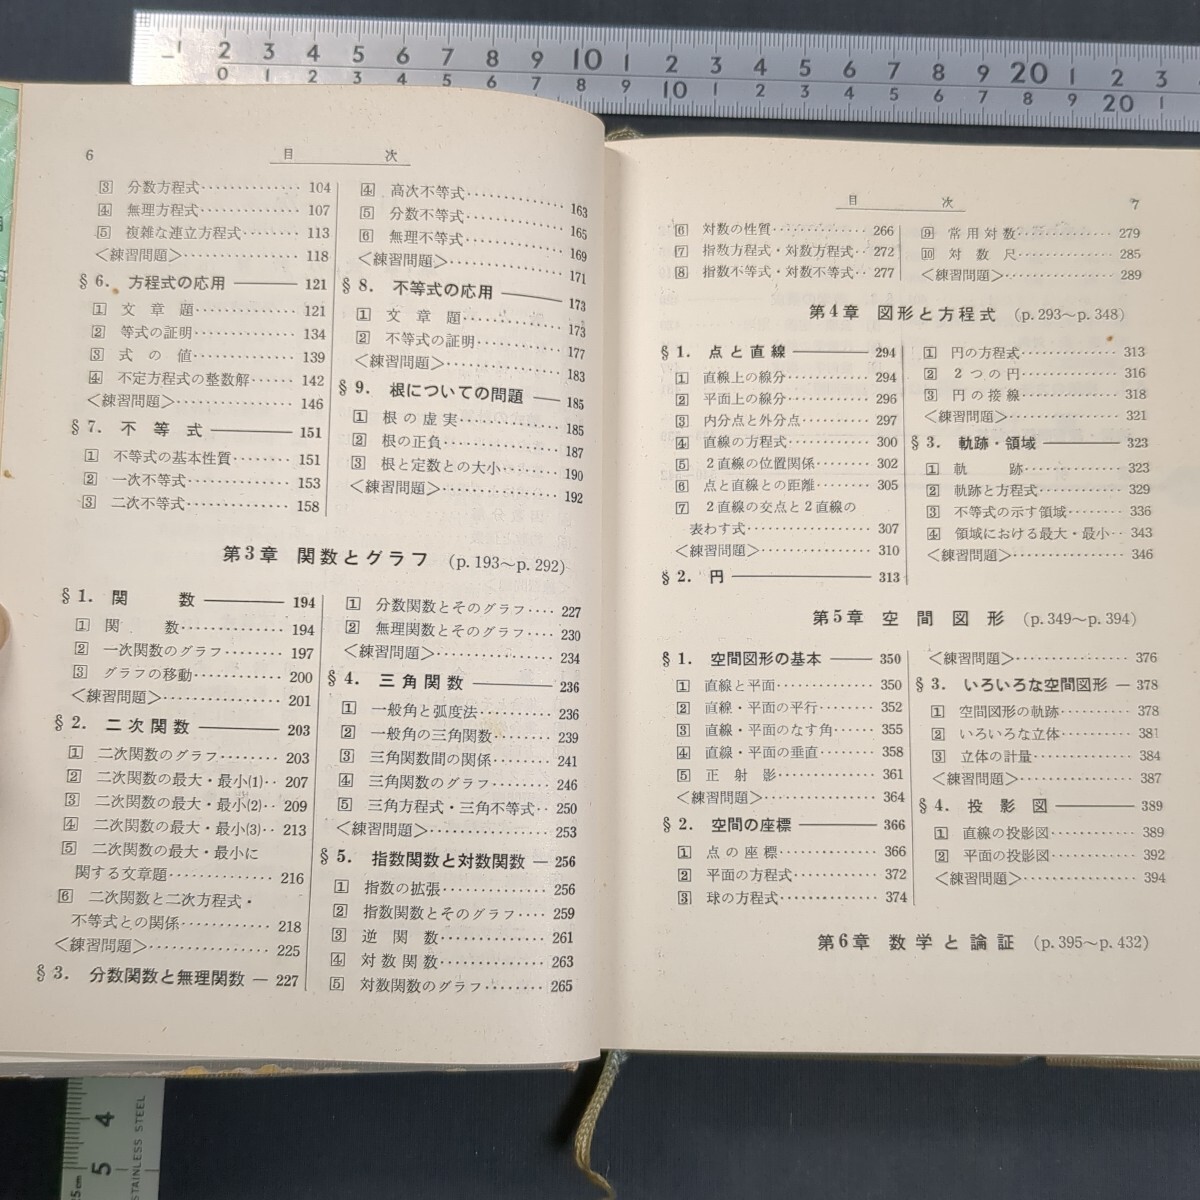 1 2 3 4 5 6 7 8 9 10 1 2 3 4 5 6 7 8 9 20 1 2 3
0 1 2 3 4 5 6 7 8 9 10 1 2 3 4 5 6 7 8 9 20 1
6
目 次
3 分数方程式 104
4 無理方程式 107
5 複雑な連立方程式 113
<練習問題> 118
§6. 方程式の応用 121
1 文章題 121
2 等式の証明 134
3 式の値 139
4 不定方程式の整数解 142
<練習問題> 146
§7. 不等式 151
1 不等式の基本性質 151
2 一次不等式 153
3 二次不等式 158
4 高次不等式 163
5 分数不等式 165
6 無理不等式 169
<練習問題> 171
§8. 不等式の応用 173
1 文章題 173
2 不等式の証明 177
<練習問題> 183
§9. 根についての問題 185
1 根の虚実 185
2 根の正負 187
3 根と定数との大小 190
<練習問題> 192
第3章 関数とグラフ (p.193〜p.292)
§1. 関数 194
1 関数 194
2 一次関数のグラフ 197
3 グラフの移動 200
<練習問題> 201
§2. 二次関数 203
1 二次関数のグラフ 203
2 二次関数の最大・最小(1) 207
3 二次関数の最大・最小(2) 209
4 二次関数の最大・最小(3) 213
5 二次関数の最大・最小に
関する文章題 216
6 二次関数と二次方程式・
不等式との関係 218
<練習問題> 225
§3. 分数関数と無理関数 227
1 分数関数とそのグラフ 227
2 無理関数とそのグラフ 230
<練習問題> 234
§4. 三角関数 236
1 一般角と弧度法 236
2 一般角の三角関数 239
3 三角関数間の関係 241
4 三角関数のグラフ 246
5 三角方程式・三角不等式 250
<練習問題> 253
§5. 指数関数と対数関数 256
1 指数の拡張 256
2 指数関数とそのグラフ 259
3 逆関数 261
4 対数関数 263
5 対数関数のグラフ 265
目 次
7
6 対数の性質 266
7 指数方程式・対数方程式 272
8 指数不等式・対数不等式 277
9 常用対数 279
10 対数尺 285
<練習問題> 289
第4章 図形と方程式 (p.293〜p.348)
§1. 点と直線 294
1 直線上の線分 294
2 平面上の線分 296
3 内分点と外分点 297
4 直線の方程式 300
5 2直線の位置関係 302
6 点と直線との距離 305
7 2直線の交点と2直線の
表わす式 307
<練習問題> 310
§2. 円 313
1 円の方程式 313
2 2つの円 316
3 円の接線 318
<練習問題> 321
§3. 軌跡・領域 323
1 軌跡 323
2 軌跡と方程式 329
3 不等式の示す領域 336
4 領域における最大・最小 343
<練習問題> 346
第5章 空間図形 (p.349〜p.394)
§1. 空間図形の基本 350
1 直線と平面 350
2 直線・平面の平行 352
3 直線・平面のなす角 355
4 直線・平面の垂直 358
5 正射影 361
<練習問題> 364
§2. 空間の座標 366
1 点の座標 366
2 平面の方程式 372
3 球の方程式 374
<練習問題> 376
§3. いろいろな空間図形 378
1 空間図形の軌跡 378
2 いろいろな立体 381
3 立体の計量 384
<練習問題> 387
§4. 投影図 389
1 直線の投影図 389
2 平面の投影図 392
<練習問題> 394
第6章 数学と論証 (p.395〜p.432)
4
5
STAINLESS STEEL